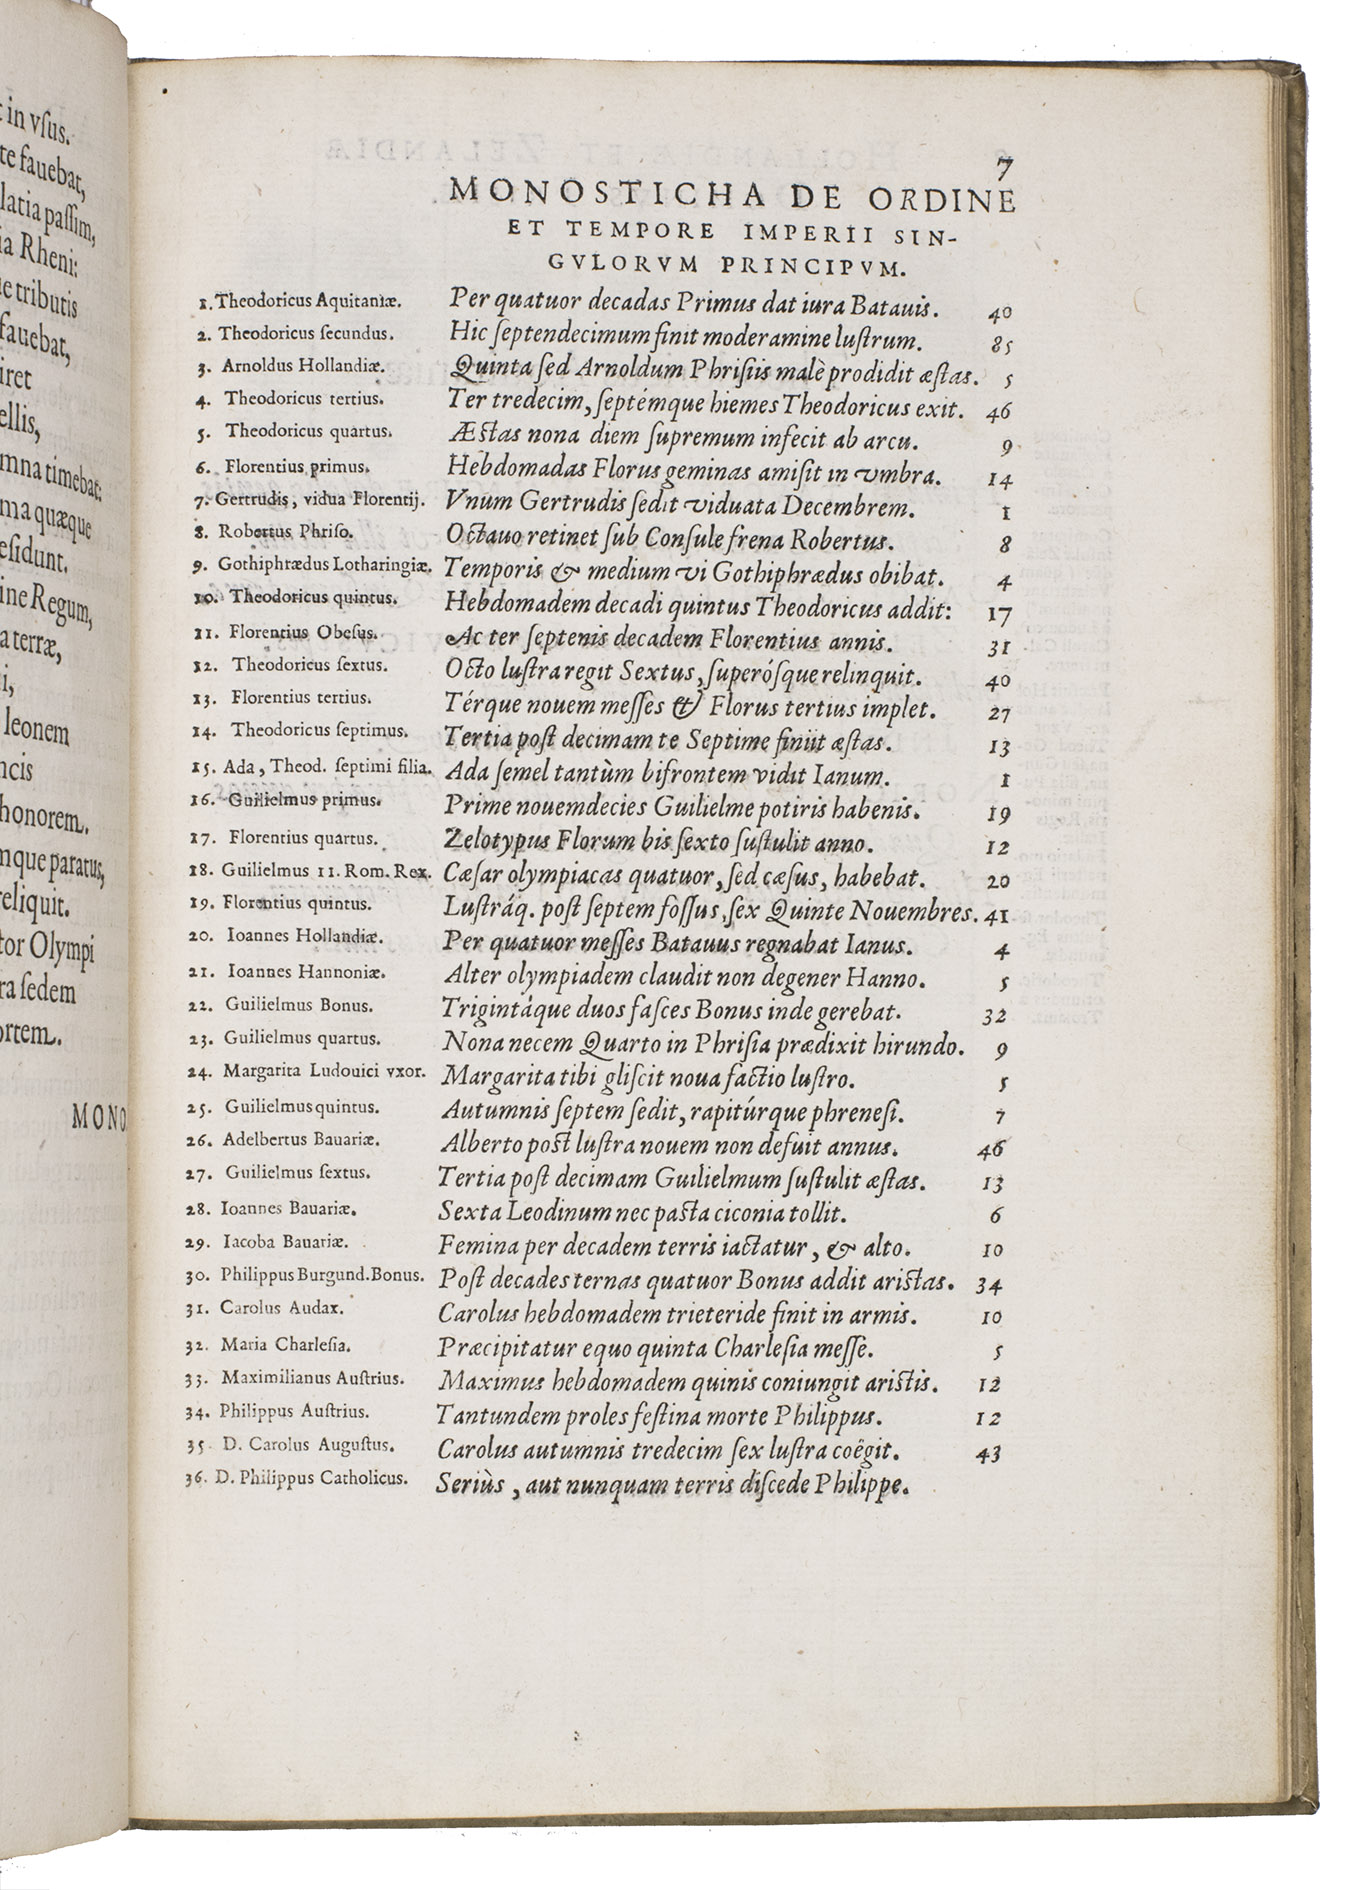 t in vſus.
te fauebat,
latia paſſim,
ia Rheni:
e tributis
fauebat,
iret
ellis,
mna timebat:
ma quæque
eſidunt.
ine Regum,
a terræ,
i,
leonem
ncis
honorem.
mque paratus,
reliquit.
tor Olympi
ra ſedem
ortem.
MONO
7
MONOSTICHA DE ORDINE
ET TEMPORE IMPERII SIN-
GVLORVM PRINCIPVM.
1. Theodoricus Aquitaniæ. Per quatuor decadas Primus dat iura Batauis. 40
2. Theodoricus ſecundus. Hic ſeptendecimum finit moderamine luſtrum. 85
3. Arnoldus Hollandiæ. Quinta ſed Arnoldum Phriſiis malè prodidit æſtas. 5
4. Theodoricus tertius. Ter tredecim, ſeptémque hiemes Theodoricus exit. 46
5. Theodoricus quartus. Æſtas nona diem ſupremum infecit ab arcu. 9
6. Florentius primus. Hebdomadas Florus geminas amiſit in vmbra. 14
7. Gertrudis, vidua Florentij. Vnum Gertrudis ſedit viduata Decembrem. 1
8. Robertus Phriſo. Octauo retinet ſub Conſule frena Robertus. 8
9. Gothiphrædus Lotharingiæ. Temporis & medium vi Gothiphrædus obibat. 4
10. Theodoricus quintus. Hebdomadem decadi quintus Theodoricus addit: 17
11. Florentius Obeſus. Ac ter ſeptenis decadem Florentius annis. 31
12. Theodoricus ſextus. Octo luſtra regit Sextus, ſuperóſque relinquit. 40
13. Florentius tertius. Térque nouem meſſes & Florus tertius implet. 27
14. Theodoricus ſeptimus. Tertia poſt decimam te Septime finiit æſtas. 13
15. Ada, Theod. ſeptimi filia. Ada ſemel tantùm bifrontem vidit Ianum. 1
16. Guilielmus primus. Prime nouemdecies Guilielme potiris habenis. 19
17. Florentius quartus. Zelotypus Florum bis ſexto ſuſtulit anno. 12
18. Guilielmus 11. Rom. Rex. Cæſar olympiacas quatuor, ſed cæſus, habebat. 20
19. Florentius quintus. Luſtráq. poſt ſeptem foſſus, ſex Quinte Nouembres. 41
20. Ioannes Hollandiæ. Per quatuor meſſes Batauus regnabat Ianus. 4
21. Ioannes Hannoniæ. Alter olympiadem claudit non degener Hanno. 5
22. Guilielmus Bonus. Trigintáque duos faſces Bonus inde gerebat. 32
23. Guilielmus quartus. Nona necem Quarto in Phriſia prædixit hirundo. 9
24. Margarita Ludouici vxor. Margarita tibi gliſcit noua factio luſtro. 5
25. Guilielmus quintus. Autumnis ſeptem ſedit, rapitúrque phreneſi. 7
26. Adelbertus Bauariæ. Alberto poſt luſtra nouem non defuit annus. 46
27. Guilielmus ſextus. Tertia poſt decimam Guilielmum ſuſtulit æſtas. 13
28. Ioannes Bauariæ. Sexta Leodinum nec pacta ciconia tollit. 6
29. Iacoba Bauariæ. Femina per decadem terris iactatur, & alto. 10
30. Philippus Burgund. Bonus. Poſt decades ternas quatuor Bonus addit ariſtas. 34
31. Carolus Audax. Carolus hebdomadem trieteride finit in armis. 10
32. Maria Charleſia. Præcipitatur equo quinta Charleſia meſſe. 5
33. Maximilianus Auſtrius. Maximus hebdomadem quinis coniungit ariſtis. 12
34. Philippus Auſtrius. Tantundem proles feſtina morte Philippus. 12
35. D. Carolus Auguſtus. Carolus autumnis tredecim ſex luſtra coëgit. 43
36. D. Philippus Catholicus. Seriùs, aut nunquam terris diſcede Philippe.